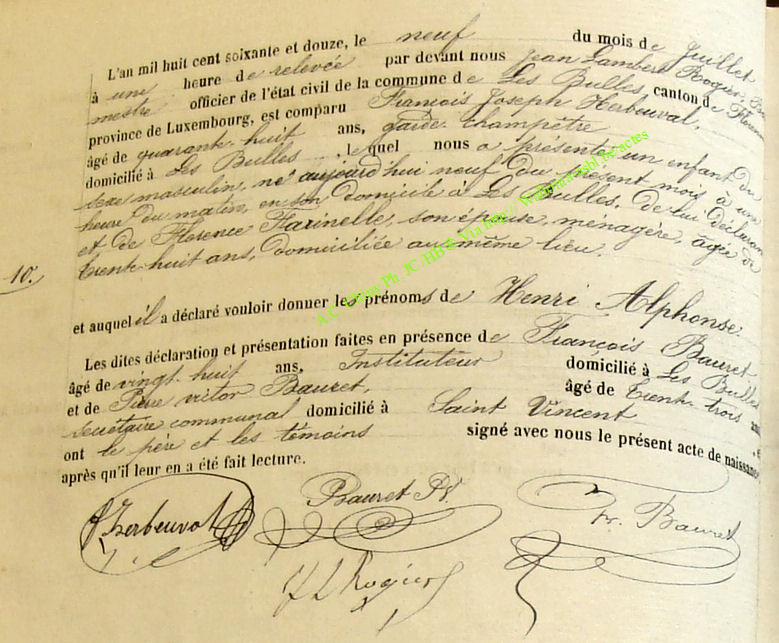 L'an mil huit cent soixante et douze, le neuf du mois de Juillet
à une heure de relevée par devant nous Jean Lambert Rogier, Bourg-
mestre officier de l'état civil de la commune de Les Bulles, canton de Florenville
province de Luxembourg, est comparu François Joseph Herbeuval,
âgé de quarante-huit ans, garde champêtre
domicilié à Les Bulles, lequel nous a présenté un enfant du
sexe masculin, né aujourd'hui neuf du présent mois à une
heure du matin, en son domicile à Les Bulles, de lui déclarant
et de Florence Farinelle, son épouse, ménagère, âgée de
trente-huit ans, domiciliée au même lieu.
10.
et auquel il a déclaré vouloir donner les prénoms de Henri Alphonse
Les dites déclaration et présentation faites en présence de François Bauret
âgé de vingt-huit ans, Instituteur domicilié à Les Bulles
et de Pierre victor Bauret, âgé de trente-trois ans
secrétaire communal domicilié à Saint Vincent
ont le père et les témoins signé avec nous le présent acte de naissance
après qu'il leur en a été fait lecture.
Herbeuval Bauret PV Fr. Bauret
J L Rogier